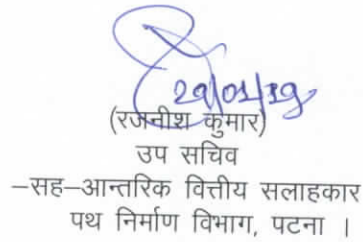 29/01/19
(रजनीश कुमार)
उप सचिव
–सह–आन्तरिक वित्तीय सलाहकार
पथ निर्माण विभाग, पटना ।